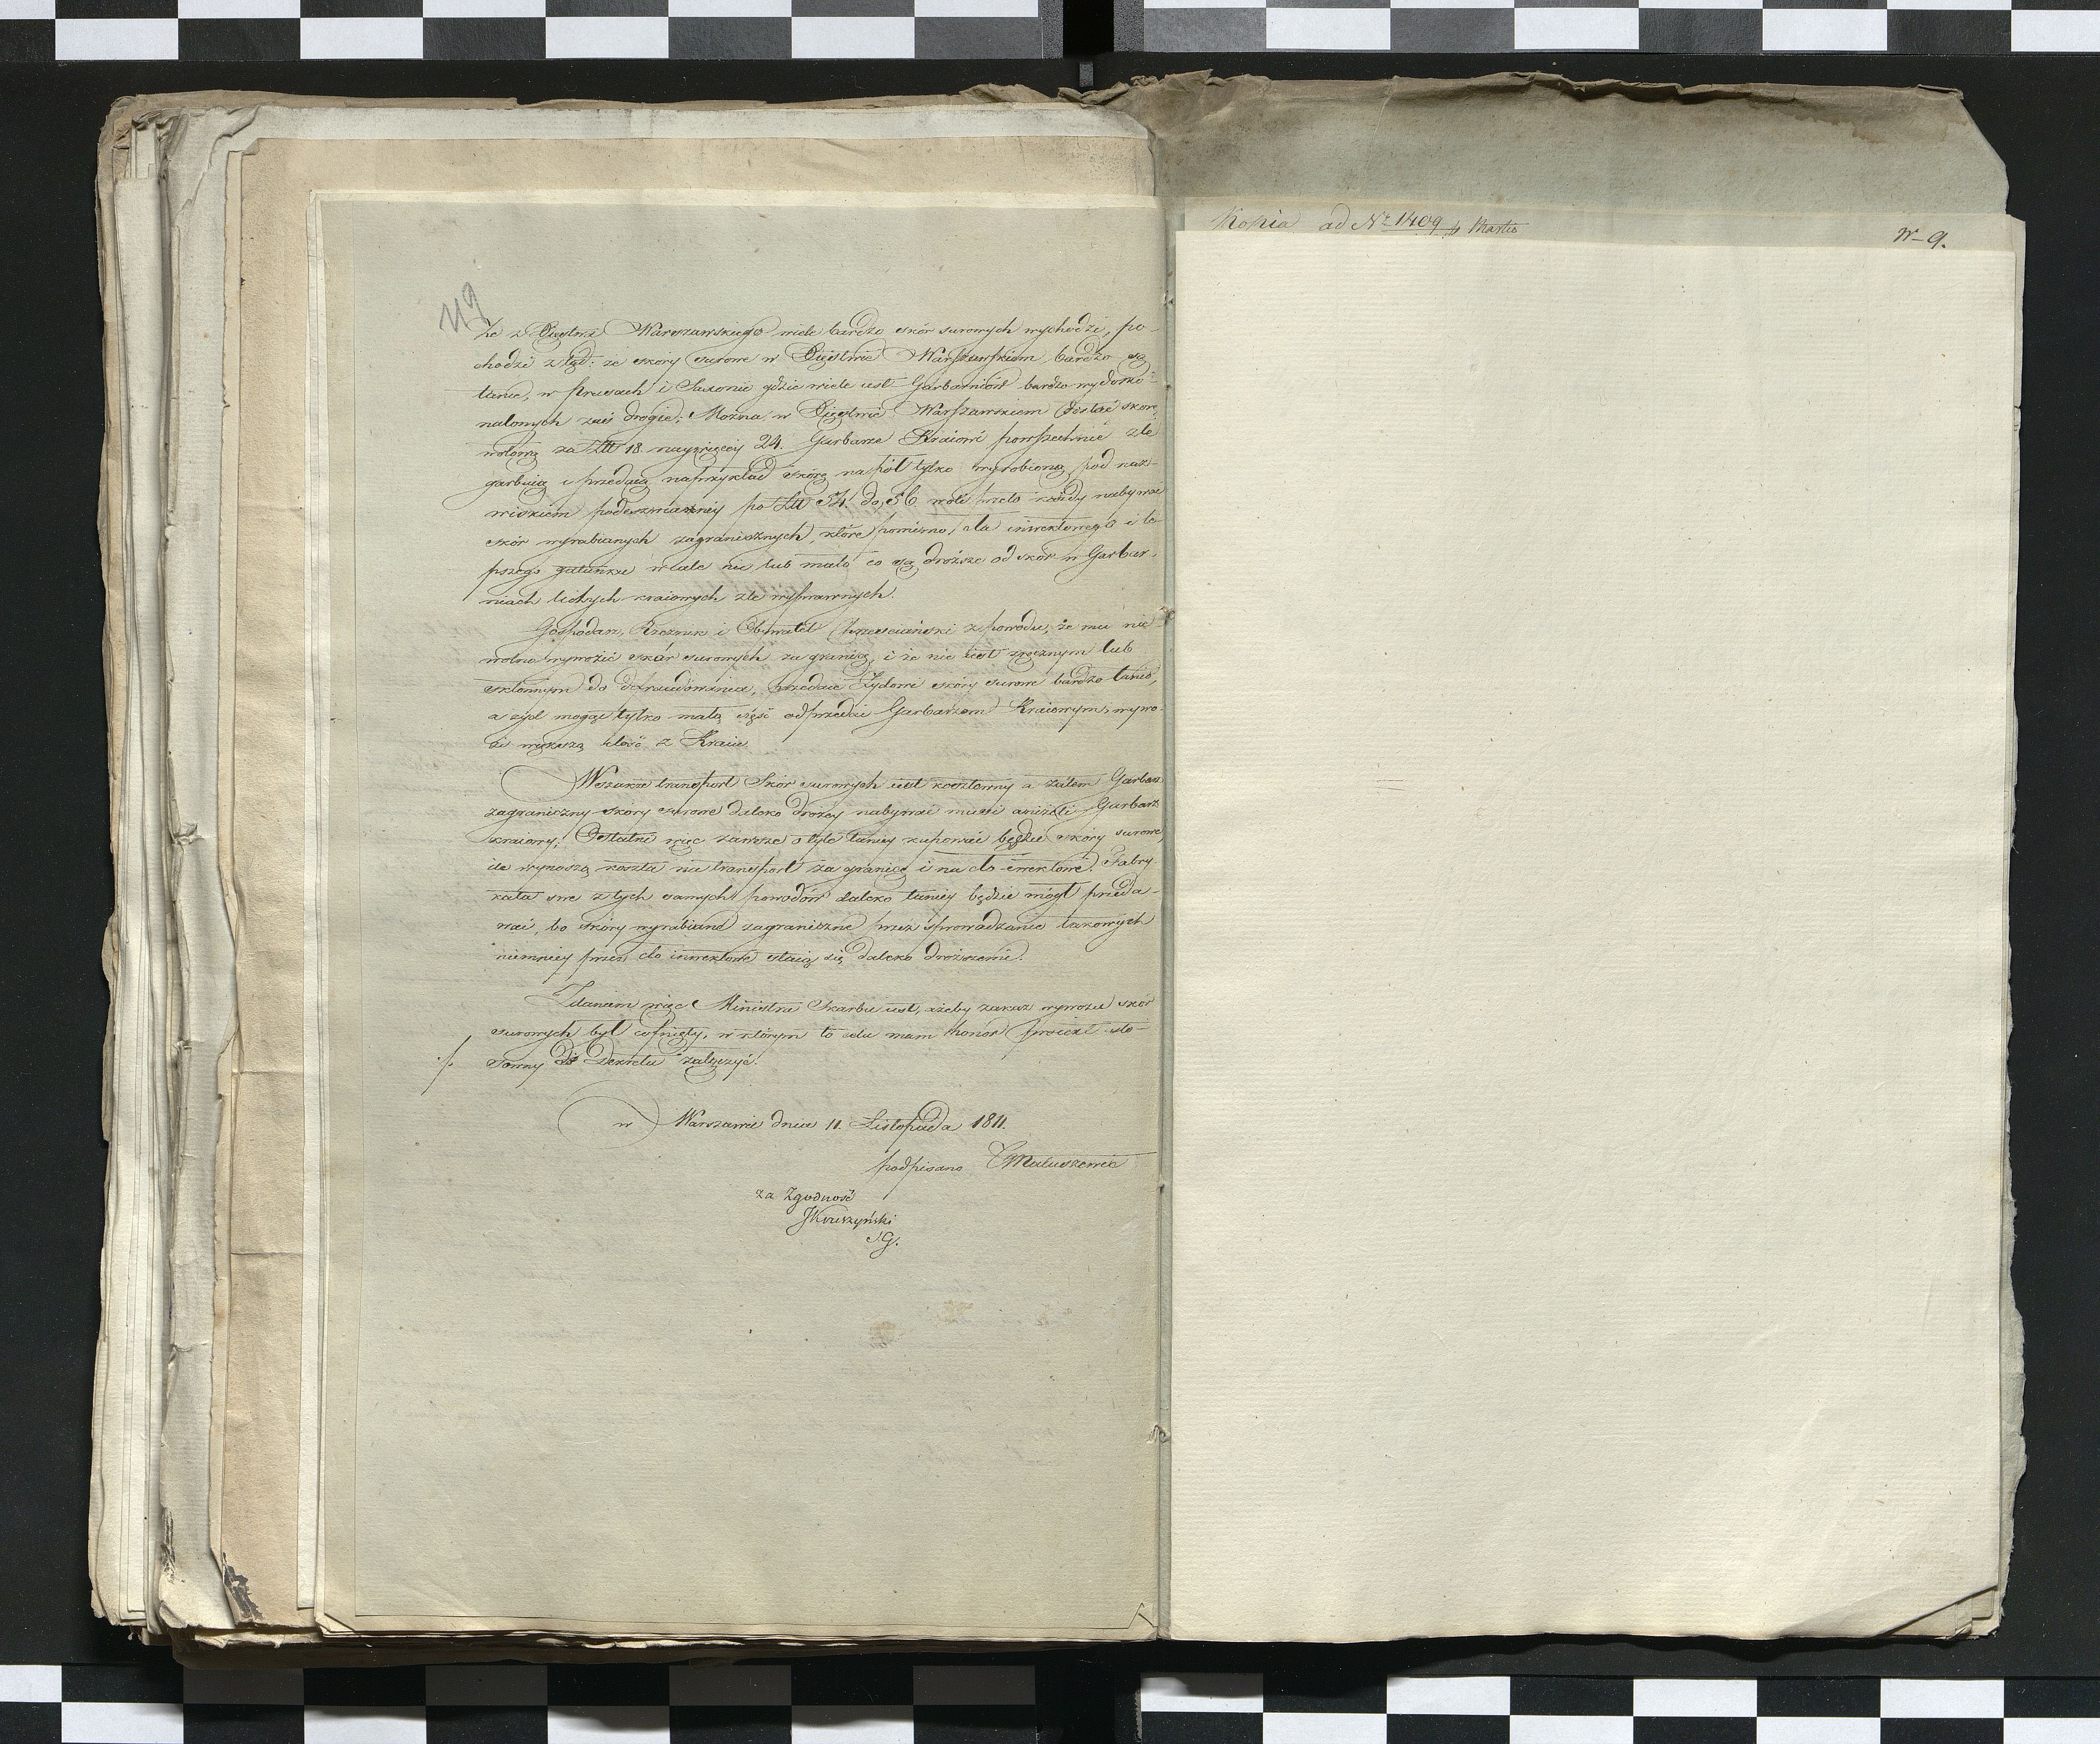 119
Że z Xięstwa Warszawskiego wiele bardzo skór surowych wychodzi, po-
chodzi ztąd: że skory surowe w Xięstwie Warszawskiem bardzo są
tanie, w Prusach i Saxonii gdzie wiele iest Garbarniów bardzo wydosko-
nalonych zaś drogie; Można w Xięstwie Warszawskiem dostać skorę
wołową za Złł 18. naywięcey 24. Garbarze Kraiowi powszechnie źle
garbuią i przedaią naprzykład skórę napół tylko wyrobioną pod naz-
wiskiem podeszwianney po Złł 54. do 56 woli przeto każdy nabywać
skór wyrabianych zagranicznych, które pomimo cła inwektowego i le-
pszego gatunku wcale nic lub mało co są droższe od skór w Garbar-
niach lichych kraiowych źle wyprawnych.
Gospodarz, Rzeznik i Obywatel Chrzesciański z powodu, że mu nie
wolno wywozić skór surowych za granicę, i że nie iest zręcznym lub
skłonnym do defraudowania, przedaie Żydowi skóry surowe bardzo tanio,
a żyd mogąc tylko małą część odprzedać Garbarzom Kraiowym, wywo-
zi większą ilość z Kraiu.
Wszakże transport Skór surowych iest kosztowny a zatem Garbarz
zagraniczny skóry surowe daleko drożey nabywać musi aniżeli Garbarz
kraiowy; Ostatni więc zawsze o tyle taniey kupować będzie skóry surowe,
ile wynoszą koszta na transport za granicę i na cło ewektowe. Fabry-
kata swe z tych samych powodów daleko taniey będzie mógł przeda-
wać, bo skóry wyrabiane zagraniczne przez sprowadzanie takowych
niemniey przez cło inwektowe staią się daleko droższemi.
Zdaniem więc Ministra Skarbu iest, ażeby zakaz wywozu skór
surowych był cofnięty, w którym to celu mam honor proiekt sto-
./. sowny do Dekretu załączyć.
w Warszawie dnia 11. Listopada 1811.
podpisano T Matuszewic
za Zgodność
JKruszyński
S.G.
Kopia ad Nr 1409 Martio
N– 9.